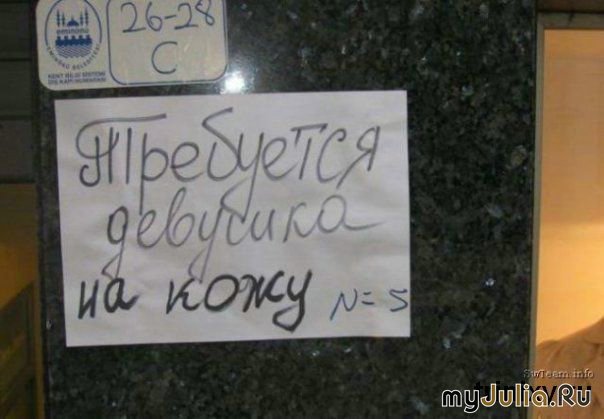 26-28
C
eminönü
EMİNÖNÜ BELEDİYESİ
KENT BİLGİ SİSTEMİ
DIŞ KAPI NUMARASI
Требуется
девушка
на кожу N=5
SwTeam.info
myJulia.Ru